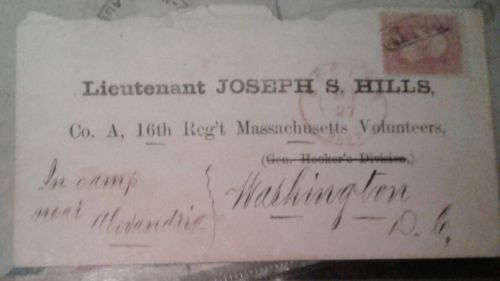 Lieutenant JOSEPH S. HILLS,
Co. A, 16th Reg't Massachusetts Volunteers,
(Gen. Hooker's Division,)
In camp
near Alexandria
Washington
D. C.
27